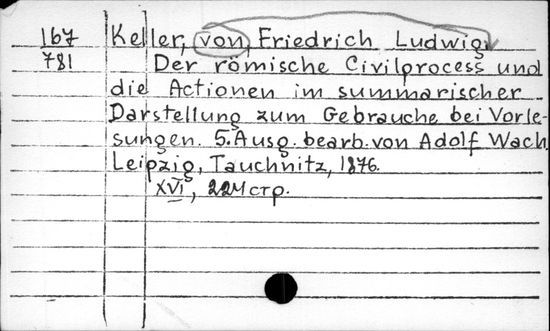 167 Keller, von, Friedrich Ludwig
781 Der römische Civilprocess und
die Actionen im summarischer
Darstellung zum Gebrauche bei Vorle-
sungen. 5. Ausg. bearb. von Adolf Wach
Leipzig, Tauchnitz, 1876.
XVI, стр.